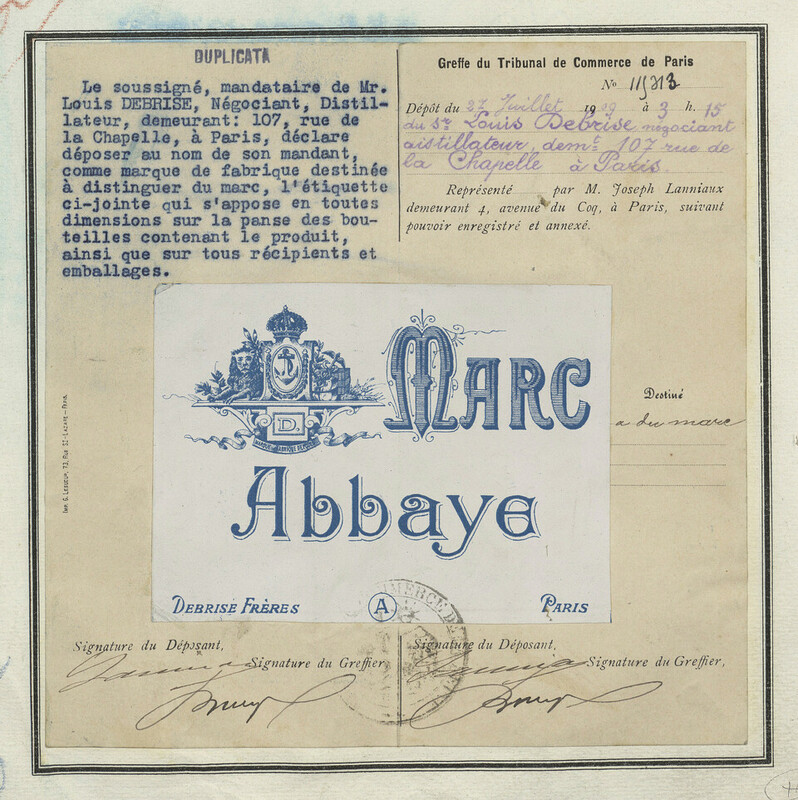 DUPLICATA
Le soussigné, mandataire de Mr.
Louis DEBRISE, Négociant, Distil-
lateur, demeurant: 107, rue de
la Chapelle, à Paris, déclare
déposer au nom de son mandant,
comme marque de fabrique destinée
à distinguer du marc, l'étiquette
ci-jointe qui s'appose en toutes
dimensions sur la panse des bou-
teilles contenant le produit,
ainsi que sur tous récipients et
emballages.
Greffe du Tribunal de Commerce de Paris
No
Dépôt du 27 Juillet 1909 à 3 h. 15
du Sr Louis Debrise, négociant
distillateur, demt 107 rue de
la Chapelle à Paris.
Représenté par M. Joseph Lanniaux
demeurant 4, avenue du Coq, à Paris, suivant
pouvoir enregistré et annexé.
D.
MARC
Abbaye
DEBRISE FRÈRES
A
PARIS
Destiné
a du marc
Signature du Déposant,
Signature du Greffier,
Signature du Déposant,
Signature du Greffier,